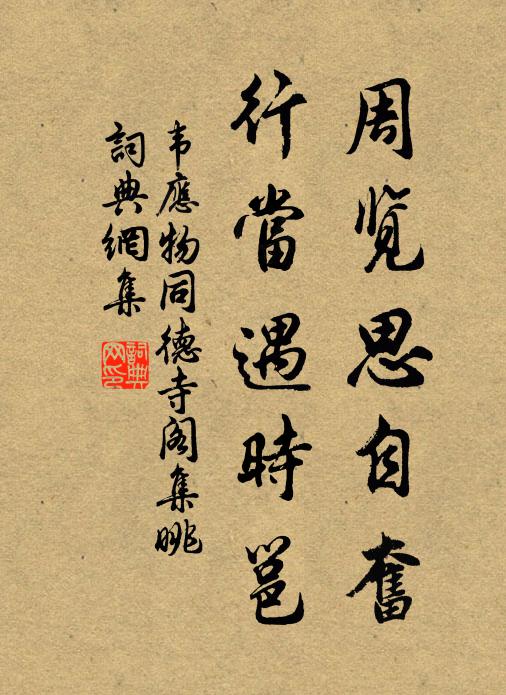 周览思自奮
行當遇時邕
韦應物同德寺阁集眺
詞典網集
詞典网印